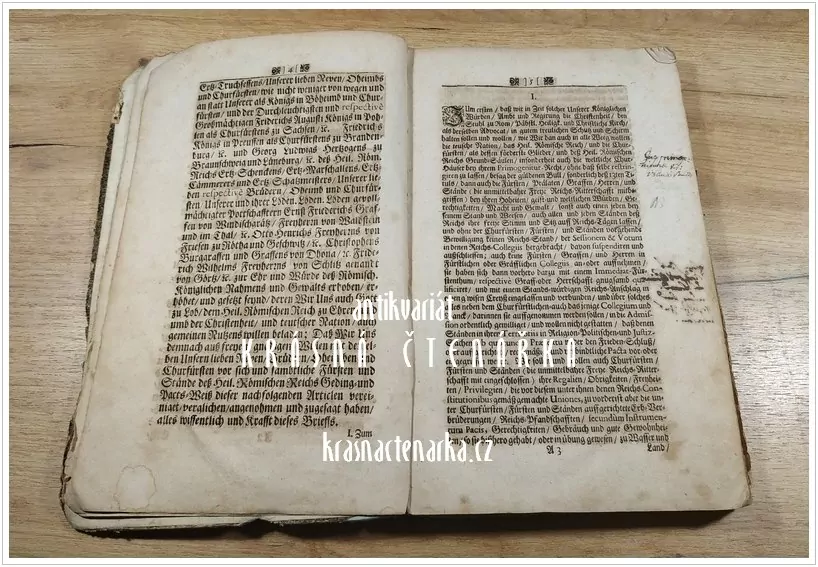 [ 4 ]
Ertz-Truchsessens/Unserer lieben Neven/Oheimbs
und Churfürsten/wie nicht weniger von wegen und
an statt Unserer als Königs in Böheimb und Chur-
fürsten/und der Durchleuchtigsten und respectivè
Großmächtigen Friderichs Augusti Königs in Poh-
len als Churfürstens zu Sachsen/ &c. Friderichs
Königs in Preussen als Churfürstens zu Branden-
burg/ &c. und Georg Ludwigs Hertzogens zu
Braunschweig und Lüneburg/ &c. deß Heil. Röm.
Reichs Ertz-Schenckens/Ertz-Marschallens/Ertz-
Cämmerers und Ertz-Schatzmeisters/Unserer lie-
den respectivè Brüdern/Oheimb und Churfür-
sten/Unserer und ihrer Loden. Loden. Loden. gevoll-
mächtigter Bottschafftern Ernst Friderichs Graf-
fen von Windischgrätz/Freyherrn von Waldstein
und im Thal/ &c. Otto Henrichs Freyherrns von
Friesen zu Rötha und Geschwitz/ &c. Christophers
Burggraffen und Graffens von Dhona/ &c. Fride-
rich Wilhelms Freyherrns von Schlitz genannt
von Görtz/ &c. zur Ehr und Würde deß Römisch-
Königlichen Nahmens und Gewalts erhoben/er-
höhet/und gesetzt seynd/deren Wir Uns auch GOtt
zu Lob/dem Heil. Römischen Reich zu Ehren/und
umb der Christenheit/und teutscher Nation/auch
gemeinen Nutzens willen beladen. Daß Wir Uns
demnach aus freyem gnädigen Willen mit
Unsern lieben Neven
Churfürsten vor sich und sämbtliche Fürsten und
Stände deß Heil. Römischen Reichs Geding- und
Pacts-Weiß dieser nachfolgenden Articlen verei-
niget/verglichen/angenommen und zugesagt haben/
alles wissentlich und Krafft dieses Brieffs.
I. Zum
[ 5 ]
I.
Zum ersten/daß wir in Zeit solcher Unserer Königlichen
Würden/Ambt und Regierung die Christenheit/den
Stuhl zu Rom/Päbstl. Heiligk. und Christliche Kirch/
als derselben Advocat/in gutem treulichem Schutz und Schirm
halten sollen und wollen/Wie Wir dan auch in alle Weeg wollen
die teutsche Nation/das Heil. Römische Reich/und die Chur-
fürsten/als dessen förderste Glieder/und deß Heil. Römischen
Reichs Grund-Säulen/insonderheit auch die weltliche Chur-
Häuser bey ihrem Primogenitur-Recht/ohne daß selbe restrin-
giren zu lassen/besag der güldenen Bull/sonderlich deß 13ten Ti-
tuls/dann auch die Fürsten/Prälaten/Graffen/Herren/und
Stände (die unmittelbahre Freye Reichs-Ritterschafft mitbe-
griffen) bey ihren Hoheiten/geist- und weltlichen Würden/Ge-
rechtigkeiten/Macht und Gewalt/sonst auch einen jeden bey
seinem Stand und Wesen/auch allen und jeden Ständen deß
Reichs ihre freye Stimm und Sitz auff Reichs-Tägen lassen/
und ohne der Churfürsten/Fürsten und Ständen vorgehende
Bewilligung keinen Reichs-Stand/der Sessionem & Votum
in denen Reichs-Collegiis hergebracht/davon suspendiren und
ausschließen; auch keine Fürsten/Graffen/und Herren in
Fürstlichen oder Gräfflichen Collegiis an- oder auffnehmen/
sie haben sich dann vorhero darzu mit einem Immediat-Für-
stenthum/respectivè Graff- oder Herrschafft gnugsamb qua-
lificiret/und mit einem Stands-würdigen Reichs-Anschlag in
eingelassen und verbunden/und über solches
alles neben dem Churfürstlichen auch das jenige Collegium und
Banck/darinnen sie auffgenommen werden sollen/in die Admis-
sion ordentlich gewilliget
Ständen in ihren Territoriis in Religion-Politischen- und Justi-
der Frieden-Schluß/
bindliche Pacta vor- oder
sollen auch Churfürsten/
Fürsten und Ständen (die unmittelbare Freye Reichs-Ritter-
schafft mit eingeschlossen) ihre Regalien/Obrigkeiten/Freyhei-
ten/Privilegien/die vor diesem unter ihnen denen Reichs-Con-
stitutionibus gemäß gemachte Uniones, zu vorderst aber die un-
ter Churfürsten/Fürsten und Ständen auffgerichtete Erb-Ver-
brüderungen/Reichs-Pfandschafften/secundùm Instrumen-
tum Pacis, Gerechtigkeiten/Gebräuch und gute Gewohnhei-
ten/so sie bißhero gehabt/oder in übung gewesen/zu Wasser und
A 3 Land/
antikvariát
KRÁSNÁ ČTENÁŘKA
krasnactenarka.cz